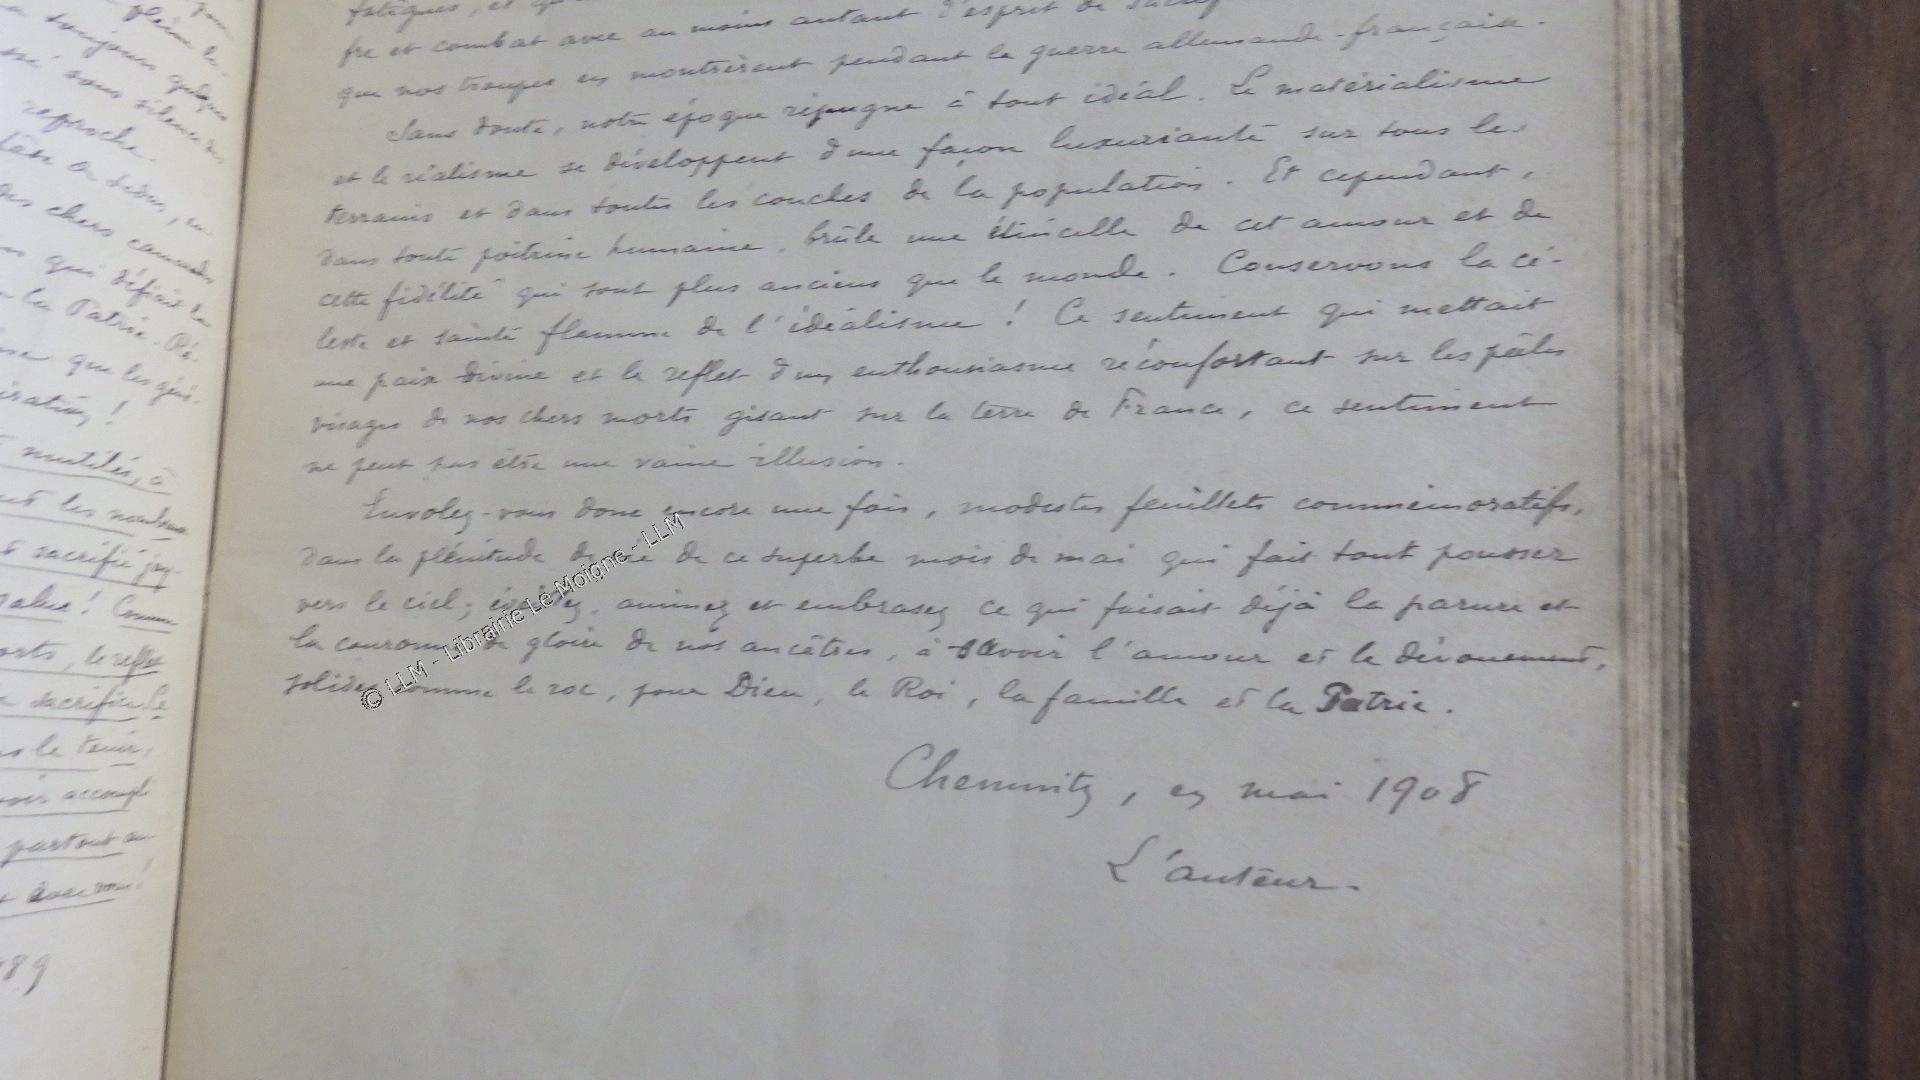 pleine la
toujours quelque
sous silence des
reproche.
des chers camarades
qui défiait la
la Patrie. Ré-
que les géné-
mutilés, à
les nombreux
sacrifié
! Comme
morts, le reflet
sacrifice. Ce
le tenir,
accompli
partout au
avec vous!
89
fatigues, et
fre et combat avec au moins autant d'esprit de
que nos troupes en montrèrent pendant la guerre allemande-française.
Sans doute, notre époque répugne à tout idéal. Le matérialisme
et le réalisme se développent d'une façon luxuriante sur tous les
terrains et dans toutes les couches de la population. Et cependant,
dans toute poitrine humaine, brûle une étincelle de cet amour et de
cette fidélité qui sont plus anciens que le monde. Conservons la cé-
leste et sainte flamme de l'idéalisme! Ce sentiment qui mettait
une paix divine et le reflet d'un enthousiasme réconfortant sur les pâles
visages de nos chers morts gisant sur la terre de France, ce sentiment
ne peut pas être une vaine illusion.
Envolez-vous donc encore une fois, modestes feuillets commémoratifs,
dans la plénitude de vie de ce superbe mois de mai qui fait tout pousser
vers le ciel; animez et embrasez ce qui faisait déjà la parure et
la couronne de gloire de nos ancêtres, à savoir l'amour et le dévouement,
solides comme le roc, pour Dieu, le Roi, la famille et la Patrie.
Chemnitz, en mai 1908
L'auteur.
© LLM - Librairie Le Moigne - LLM